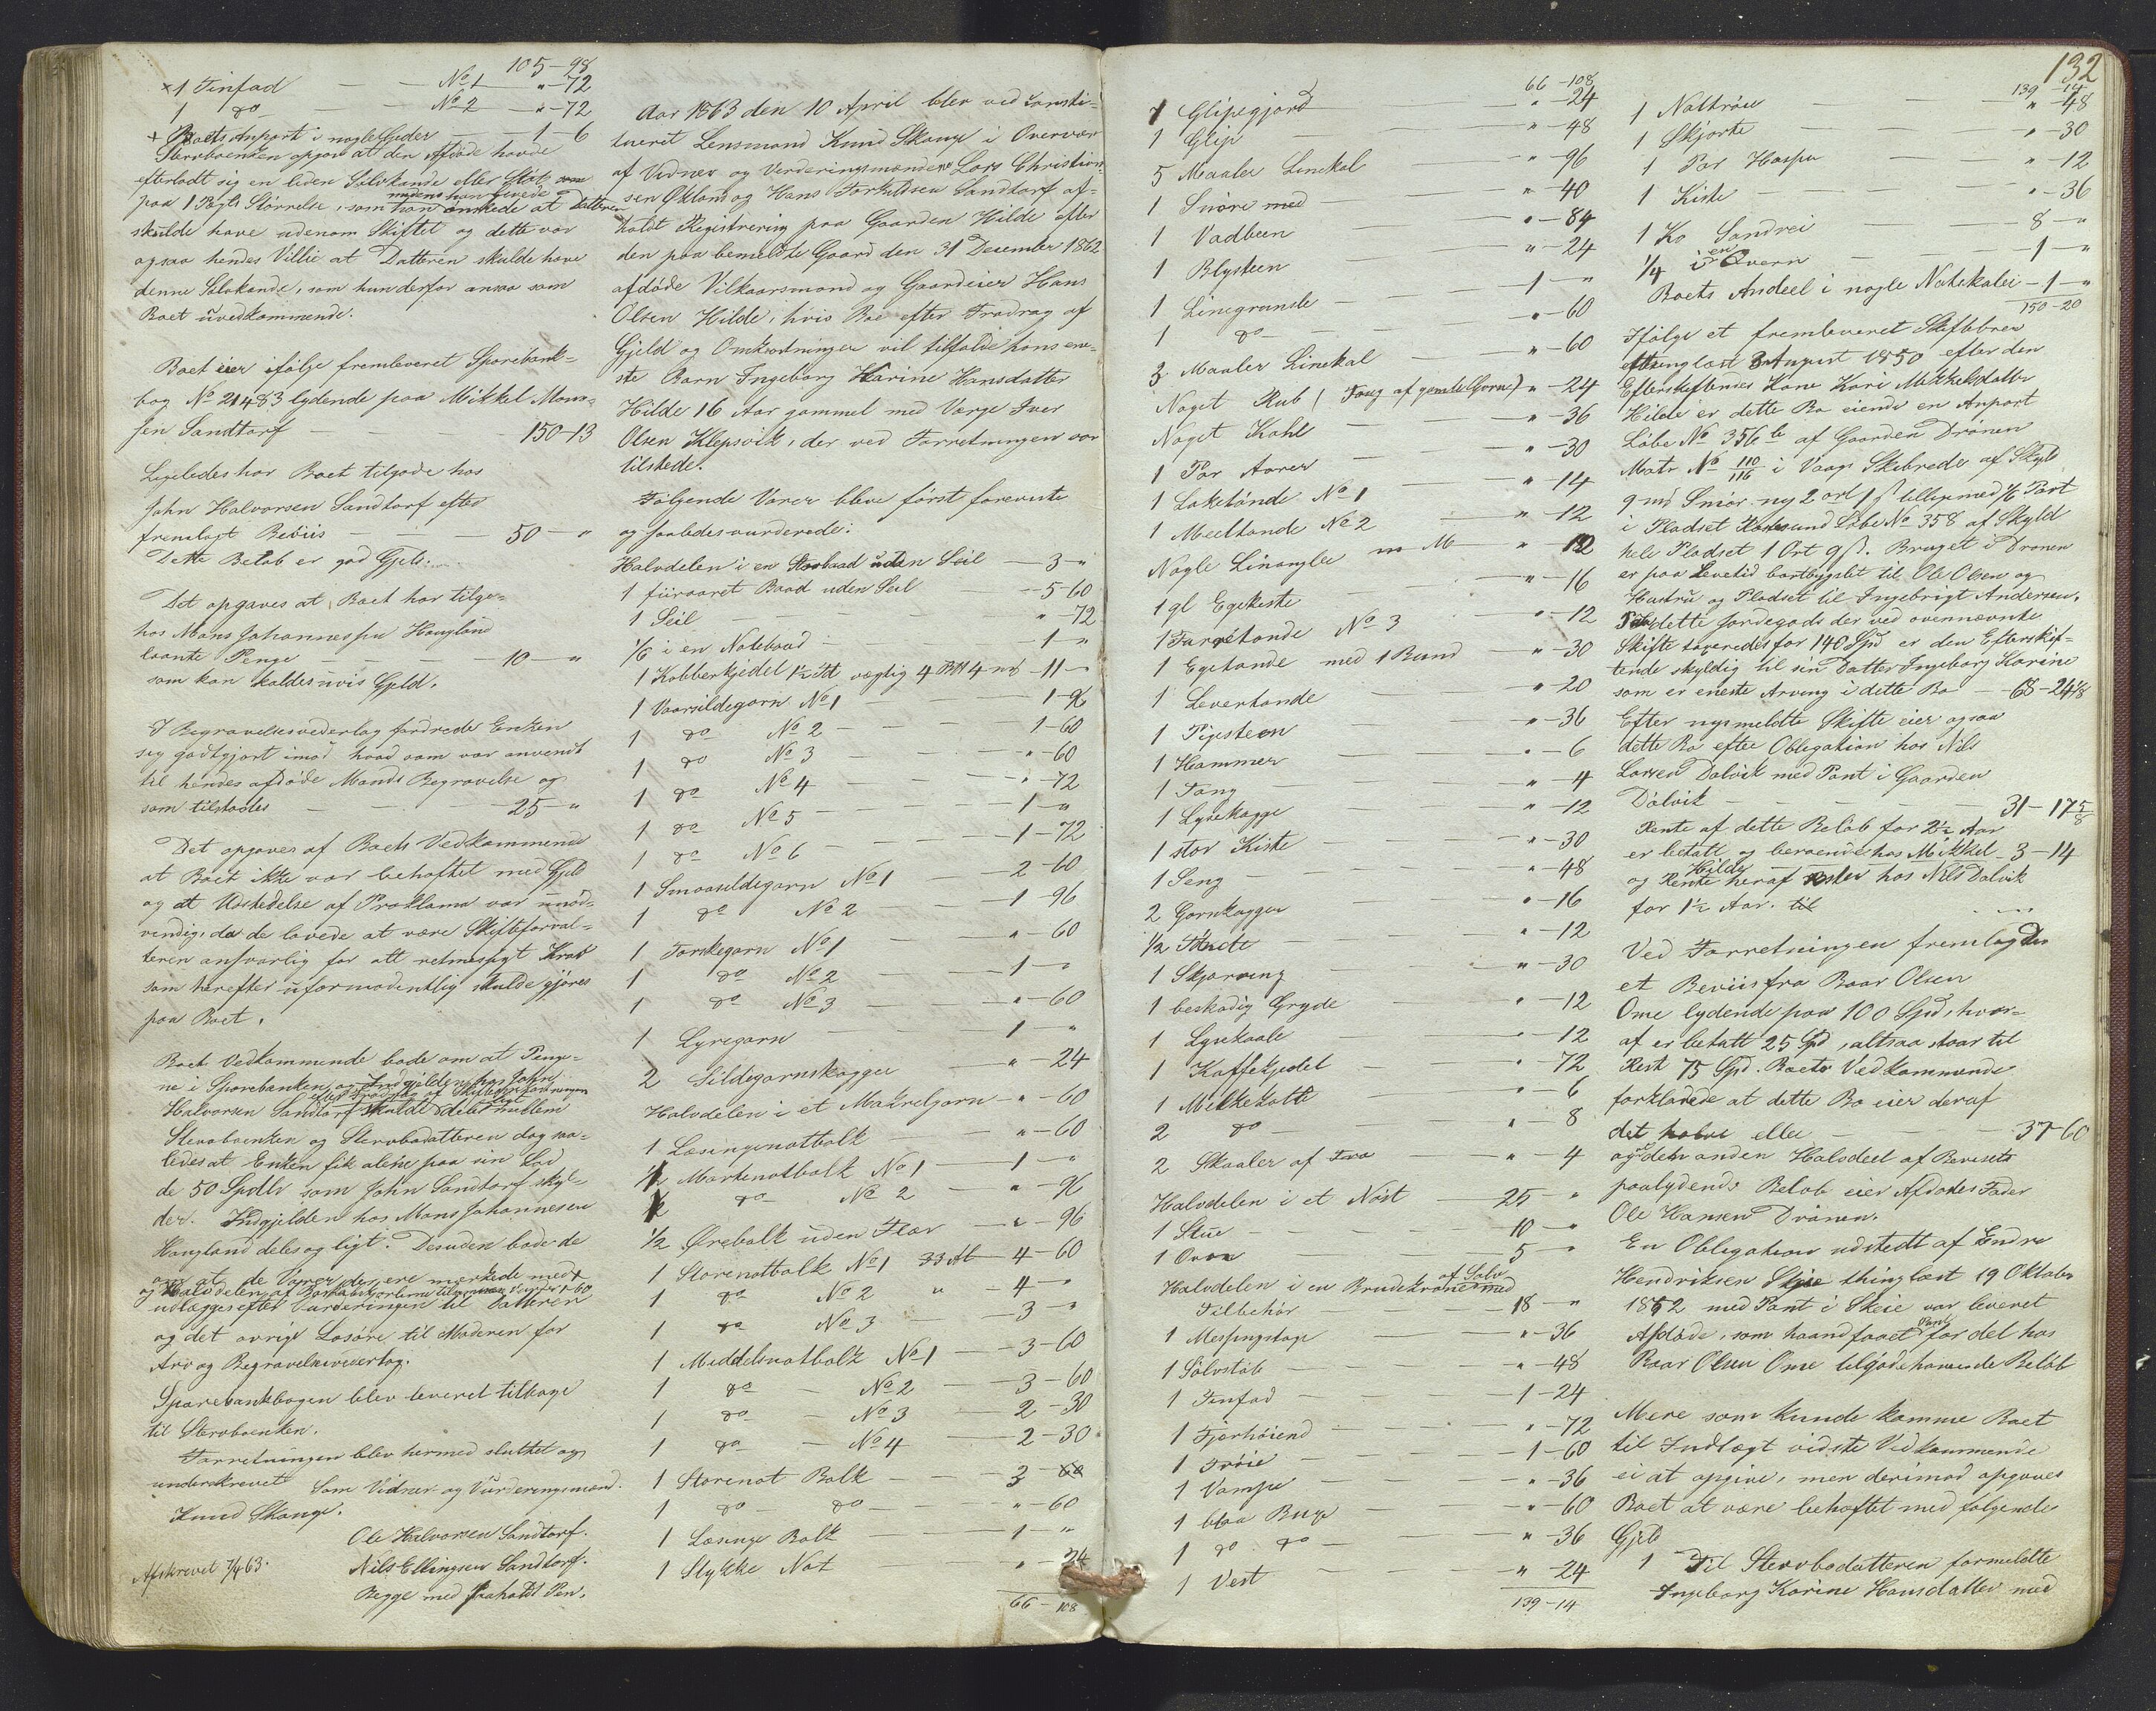 105-98
×1 Tinfad - - No 1 - " - 72
1 do - - No 2 - " - 72
+ Boets Anpart i nogle Huder - 1 - 6
Stervboenken opgav at den Afdøde havde
efterladt sig en liden Sølvkande eller Stob som
paa 1 Pægls Størrelse, som han medens han levede ønskede at Datteren
skulde have udenom Skiftet og dette var
ogsaa hendes Villie at Datteren skulde have
denne Sølvkande, som hun derfor ansaa som
Boet uvedkommende.
Boet eier ifølge fremleveret Sparebank-
bog No 21483 lydende paa Mikkel Mons-
sen Sandtorf - - 150-13
Ligeledes har Boet tilgode hos
John Halvorsen Sandtorf efter
fremlagt Beviis - - 50 - "
Dette Beløb er god Gjeld.
Det opgaves at Boet har tilgo-
hos Mons Johannessen Haugland
laante Penge - - 10 - "
som kan kaldes uvis Gjeld.
I Begravelsesvederlag fordrede Enken
sig godtgjort imod hvad som var anvendt
til hendes afdøde Mands Begravelse og
som tilstodes - - 25 - "
Det opgaves af Boets Vedkommende
at Boet ikke var behæftet med Gjeld
og at Udstedelse af Proklama var unød-
vendig, da de lovede at være Skifteforval-
teren ansvarlig for alt retmæsigt Krav
som herefter uformodentlig skulde gjøres
paa Boet.
Boet Vedkommende bade om at Penge-
ne i Sparebanken og Indgjelden hos John
Halvorsen Sandtorf efter Fradrag af Skifteomkostningen skulde deles ligt mellem
Stervboenken og Stervbodatteren dog saa-
ledes at Enken fik alene paa sin Lod
de 50 Spdlr som John Sandtorf skyl-
der. Indgjelden hos Mons Johannesen
Haugland deles og ligt. Desuden bade de
om at de Varer der ere mærkede med +
udlægges efter Vurderingen til Datteren
og det øvrige Løsøre til Moderen for
Arv og Begravelsesvederlag.
Sparebankbogen blev leveret tilbage
til Stervboenken.
Forretningen blev hermed sluttet og
underskrevet Som Vidner og Vurderingsmænd.
Knud Skauge.
Ole Halvorsen Sandtorf.
Afskrevet 7/4 63. Nils Ellingsen Sandtorf.
Begge med paaholdt Pen.
Aar 1863 den 10 April blev ved consti-
tueret Lensmand Knud Skauge i Overvær
af Vidner og Verderingsmændene Lars Christian-
sen Økland og Hans Torkildsen Sandtorf af-
holdt Registrering paa Gaarden Hilde efter
den paa bemeldte Gaard den 31 December 1862
afdøde Vilkaarsmand og Gaardeier Hans
Olsen Hilde, hvis Bo efter Fradrag af
Gjeld og Omkostninger vil tilfalde hans ene-
ste Barn Ingeborg Karine Hansdatter
Hilde 16 Aar gammel med Værge Iver
Olsen Klepsvik, der ved Forretningen var
tilstede.
Følgende Varer bleve først foreviste
og saaledes vurderede:
Halvdelen i en Storbaad uden Seil - 3 - "
1 fiiraaret Baad uden Seil - 5-60
1 Seil - " - 72
1/6 i en Notebaad - 1 - "
1 Kobberkjedel 1½ Td vægtig 4 Bpd 4 mk - 11 - "
1 Vaarsildegarn No 1 - 1-96
1 do No 2 - 1-60
1 do No 3 - " - 60
1 do No 4 - " - 72
1 do No 5 - 1 - "
1 do No 6 - 1-72
1 Smaasildegarn No 1 - 2-60
1 do No 2 - 1-96
1 Torskegarn No 1 - " - 60
1 do No 2 - 1 - "
1 do No 3 - " - 60
1 Lyregarn - 1 - "
2 Sildegarnskagger - " - 24
Halvdelen i et Makrelgarn - " - 60
1 Læsingsnotbolk - " - 60
½ Mortenotbolk No 1 - 1 - "
½ do No 2 - " - 96
½ Ørebolk uden Flær - " - 96
1 Storenotbolk No 1 33 Al - 4-60
1 do No 2 " - 4 - "
1 do No 3 - 3 - "
1 Middelsnotbolk No 1 - 3-60
1 do - No 2 - 3-60
1 do - No 3 - 2-30
1 do - No 4 - 2-30
1 Storenot Bolk - 3 - 60
1 do - do - " - 60
1 Læsinge Bolk - 1 - "
1 Stykke Not - " - 24
66-108
66-108
7 Glipegjord - " - 24
1 Glip - " - 48
5 Maaler Linekal - " - 96
1 Snøre med - " - 40
1 Vadbeen - " - 84
1 Blysteen - " - 24
1 Linegrunsle - 1 - "
1 do - " - 60
3 Maaler Linekal - " - 60
Noget Rub (Toug af gamle Garne) " - 24
Noget Kohl - " - 36
1 Par Aarer - " - 30
1 Laketønde No 1 - " - 14
1 Meeltønde No 2 - " - 12
Nogle Linangler - " - 12
1 gl Egekiste - " - 16
1 Farvetønde No 3 - " - 12
1 Egetønde med 1 Bund - " - 30
1 Levertønde - " - 20
1 Pigsteen - " - 36
1 Hammer - " - 6
1 Tang - " - 4
1 Lysekagge - " - 12
1 stor Kiste - " - 30
1 Seng - " - 48
2 Garnkagger - " - 16
½ Tønde - " - 12
1 Skjæreng - " - 30
1 beskadig Gryde - " - 12
1 Lysekaale - " - 12
1 Kaffekjedel - " - 72
1 Melkekolle - " - 6
2 do - " - 8
2 Skaaler af Træ - " - 4
Halvdelen i et Nøst - 25 - "
1 Stue - 10 - "
1 Ovn - 5 - "
Halvdelen i en Brudekrone af Sølv med
Tilbehør - 18 - "
1 Messingstage - " - 36
1 Sølvstob - " - 48
1 Tinfad - 1-24
1 Fjærhøiend - " - 72
1 Trøie - 1-60
1 Vampe - " - 36
1 blaa Buxe - " - 60
1 do do - " - 36
1 Vest - " - 24
139-14
132
139-14
1 Nattrøie - " - 48
1 Skjorte - " - 30
1 Par Hosper - " - 12
1 Kiste - " - 36
1 Ko Sandrei - 8 - "
¼ i en Qvern - 1 - "
Boets Andeel i nogle Notekalei - 1 - "
150-20
Ifølge et fremleveret Skiftebrev
thinglæst 3 August 1850 efter den
Efterskiftendes Kone Kari Mikkelsdatter
Hilde er dette Bo eiende en Anpart
Løbe No 356 b af Gaarden Drønen
Matr No 110/116 i Vaags Skibrede af Skyld
9 mk Smør ny 2 ort 1 ß tilligemed 1/6 Part
i Pladset Løbe No 358 af Skyld
hele Pladset 1 Ort 9 ß. Bruget i Drønen
er paa Levetid bortbygslet til Ole Olsen og
Hustru og Pladset til Ingebrigt Andersen.
dette Jordegods der ved ovennævnte
Skifte for 140 Spd er den Efterskif-
tende skyldig til sin Datter Ingeborg Karine
som er eneste Arving i dette Bo - 68-24⅛
Efter nysmeldte Skifte eier ogsaa
dette Bo efter Obligation hos Nils
Larsen Dalvik med Pant i Gaarden
Dalvik - - 31-17⅝
Rente af dette Beløb for 2½ Aar
er betalt og beroende hos Mikkel Hilde 3-14
og Rente heraf rester hos Nils Dalvik
for 1½ Aar. til
Ved Forretningen fremlagdes
et Beviis fra Baar Olsen
Ome lydende paa 100 Spd, hvor-
af er betalt 25 Spd, altsaa staar til
Rest 75 Spd. Boets Vedkommende
forklarede at dette Bo eier deraf
det halve eller - - 37-60
og den anden Halvdeel af Bevisets
paalydende Beløb eier Afdødes Fader
Ole Hansen Drønen.
En Obligation udstedt af Endre
Hendriksen Skeie thinglæst 19 Oktober
1852 med Pant i Skeie var leveret
Afdøde, som haandfaaet Pant for det hos
Baar Olsen Ome tilgodehavende Beløb
Mere som kunde komme Boet
til Indtægt vidste Vedkommende
ei at opgive, men derimod opgaves
Boet at være behæftet med følgende
Gjeld
1 Til Stervbodatteren formeldte
Ingeborg Karine Hansdatter med